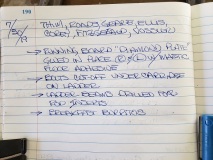 190
7/30/19
THU, ROADS, GEARE, ELLIS,
COREY, FITZGERALD, VOSDLOH
→ RUNNING BOARD "DIAMOND PLATE"
GLUED IN PLACE W/ MASTIC
FLOOR ADHESIVE
→ BOLTS CUT OFF UNDER CARRIAGE
ON LADDER
→ LADDER BEAMS DRILLED FOR
FOR
→ BREAKFAST BURRITOS